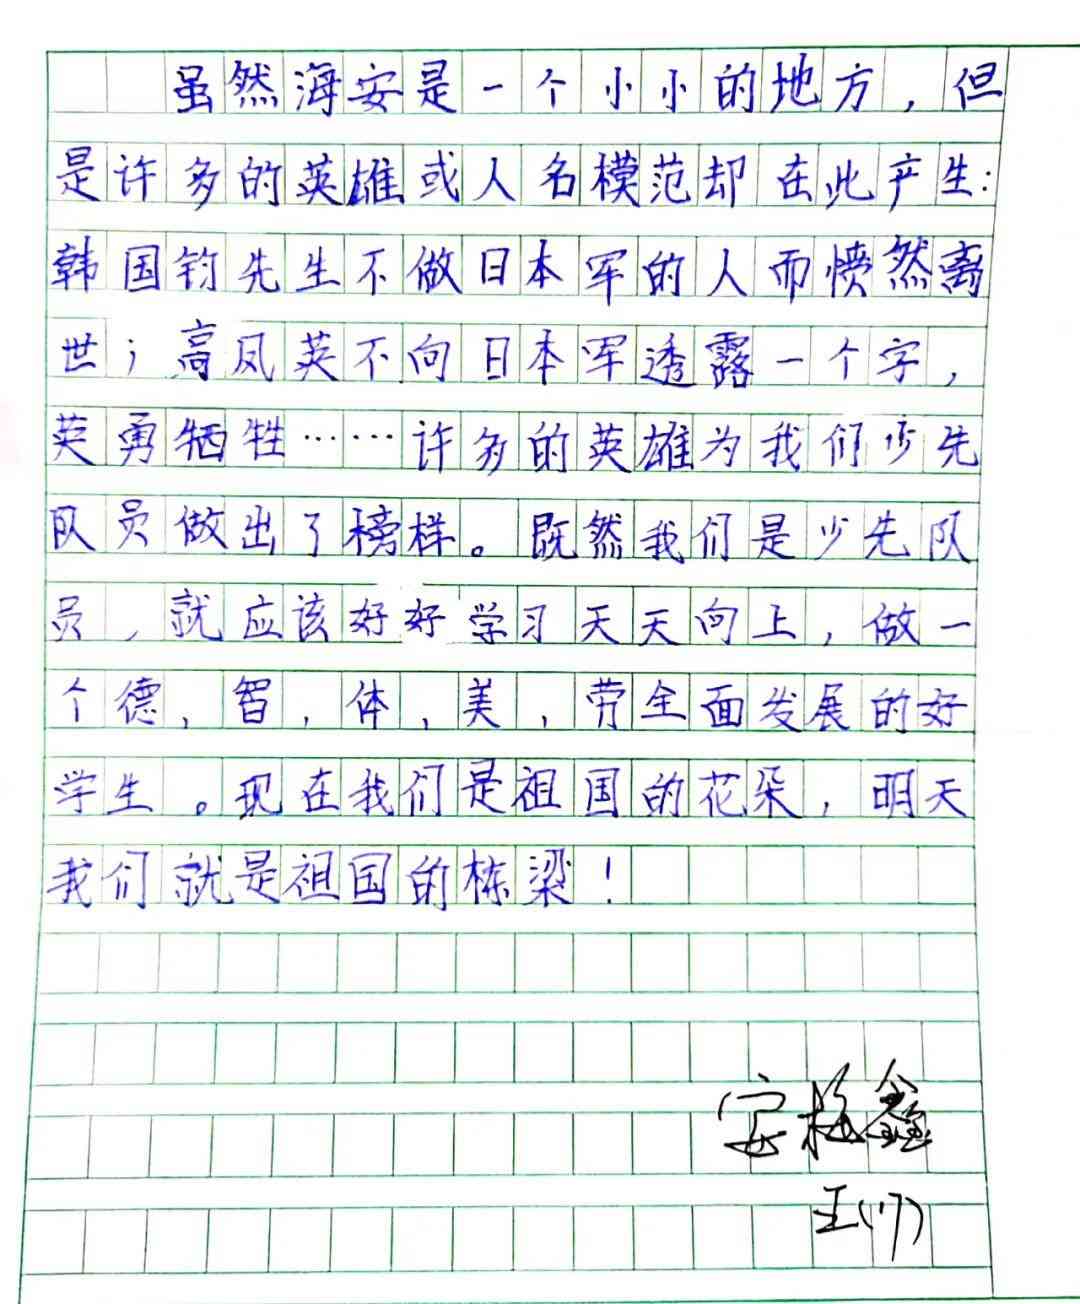 虽然海安是一个小小的地方，但
是许多的英雄或人名模范却在此产生：
韩国钧先生不做日本军的人而愤然离
世；高凤英不向日本军透露一个字，
英勇牺牲……许多的英雄为我们少先
队员做出了榜样。既然我们是少先队
员，就应该好好学习天天向上，做一
个德，智，体，美，劳全面发展的好
学生。现在我们是祖国的花朵，明天
我们就是祖国的栋梁！